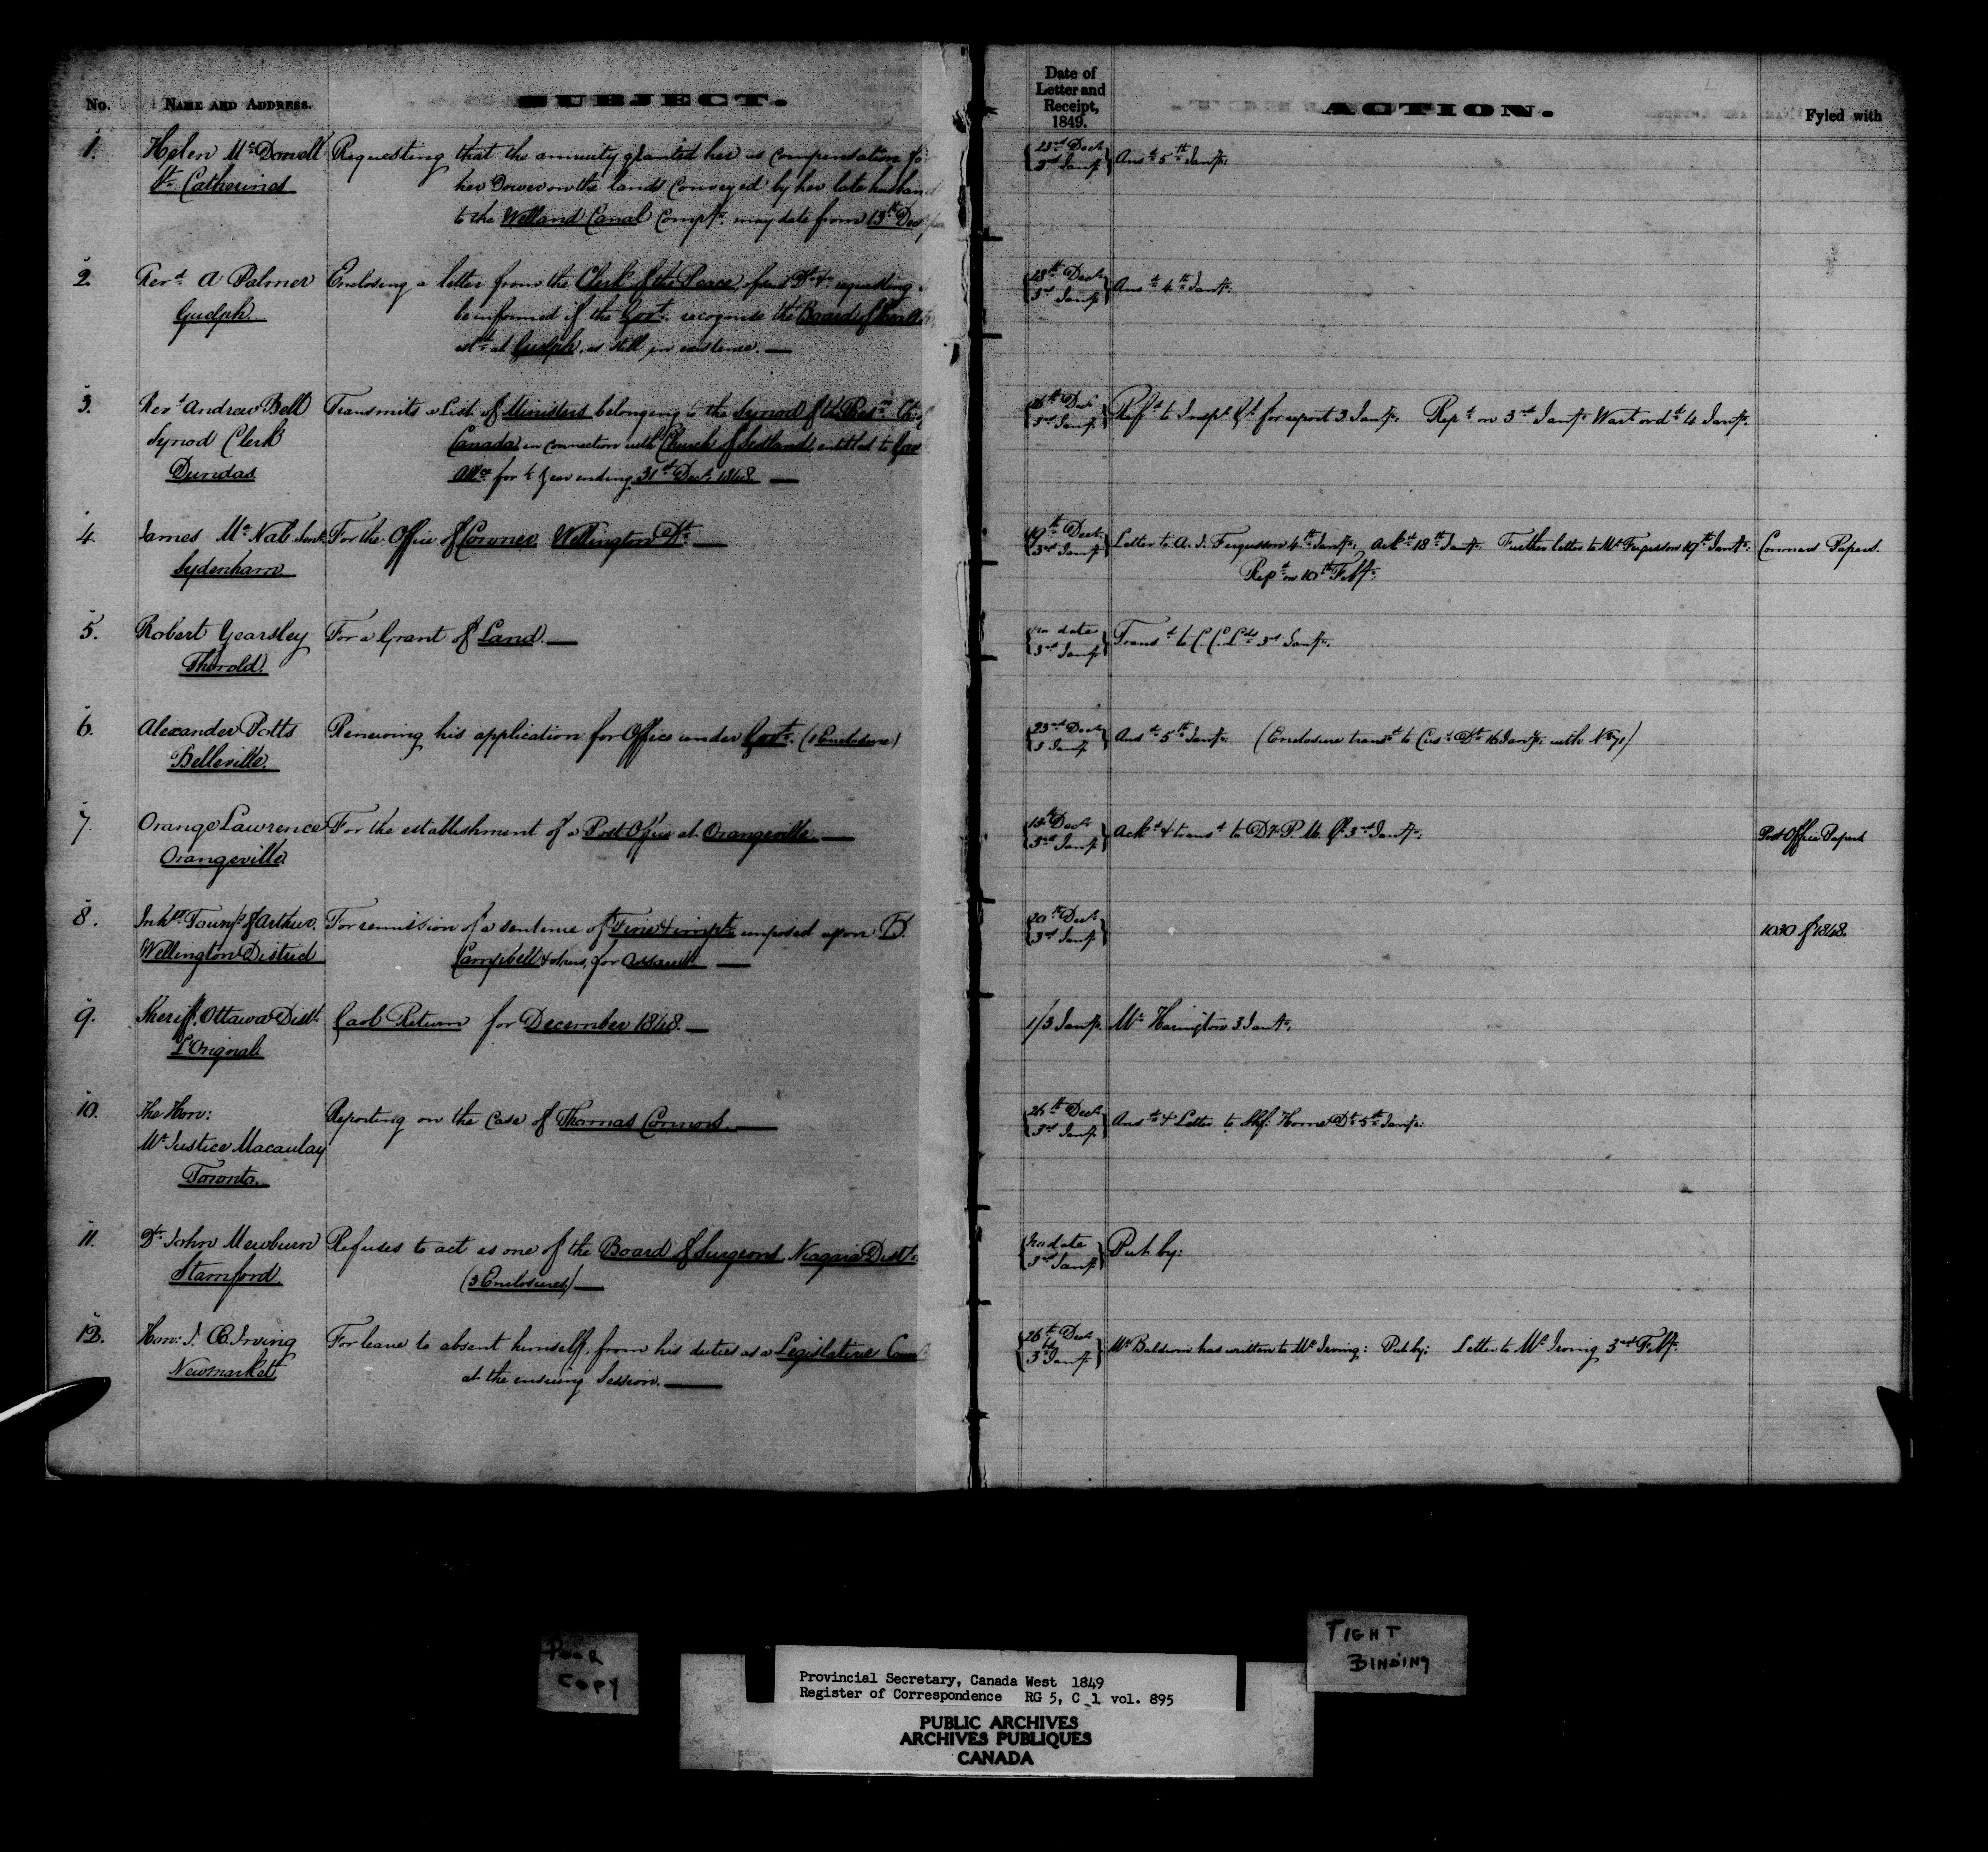 No. NAME AND ADDRESS. SUBJECT.
1. Helen McDonell Requesting that the annuity granted her as compensation fo
St. Catherines her Dower on the lands conveyed by her late husband
to the Welland Canal Compy. may date from 13th Decr
2. Revd. A Palmer Enclosing a letter from the Clerk of the Peace, of said Dt. &c. requesting
Guelph. be informed if the Govt. recognise the Board of Health
at Guelph, as still in existence.—
3. Revd. Andrew Bell Transmits a List of Ministers belonging to the Synod of the Presn. Ch. of
Synod Clerk Canada in connection with Church of Scotland, entitled to Gov
Dundas Allce for ½ Year ending 31st Decr. 1848 —
4. James McNab Senr. For the Office of Coroner Wellington Dt. —
Sydenham
5. Robert Yearsley For a Grant of Land.—
Thorold.
6. Alexander Potts Renewing his application for Office under Govt. (1 Enclosure)
Belleville.
7. Orange Lawrence For the establishment of a Post Office at Orangeville —
Orangeville
8. Inhts. Townsp. of Arthur. For remission of a sentence of Fine & impt. imposed upon D.
Wellington District Campbell & others, for Assault. —
9. Sheriff, Ottawa Distt. Gaol Return for December 1848.—
L'Orignal
10. The Hon: Reporting on the Case of Thomas Connors. —
Mr. Justice Macaulay
Toronto.
11. Dr. John Mewburn Refuses to act as one of the Board of Surgeons Niagara Distt.
Stamford. (3 Enclosures) —
12. Hon: J. Æ. Irving For leave to absent himself, from his duties as a Legislative Coun
Newmarket at the ensuing Session. —
Date of
Letter and
Receipt,
1849.
ACTION. Fyled with
23rd Decr
3rd Jany Ansd. 5th Jany.
28th Decr
3rd Jany Ansd. 4th Jany.
26th Decr
3rd Jany Refd. to Inspr. Gl. for report 3 Jany. Repd. on 3rd Jany. Wart ordd. 4 Jany.
19th Decr
3rd Jany Letter to A. J. Fergusson 4th Jany. Ackd. 18th Jany. Further letter to Mr. Fergusson 19th Jany. Coroners Papers.
Repd. on 10th Feby.
No date
3rd Jany Transd. to C. C. Lds. 3rd Jany.
23rd Decr
3 Jany Ansd. 5th Jany. (Enclosure transd. to Cus. Dt. 16 Jany. with No 71)
18th Decr
3rd Jany Ackd. & transd. to Dy. P. M. Gl. 3rd Jany. Post Office Papers
20th Decr
3rd Jany 1030 of 1848.
1/3 Jany. Mr. Harington 3 Jany.
26th Decr
3rd Jany Ansd. & Letter to Shf. Home Dt. 5th Jany.
No date
3rd Jany Put by:
26th Decr
3rd Jany Mr Baldwin has written to Mr. Irving: Put by: Letter to Mr. Irving 3rd Feby.
POOR
COPY
TIGHT
BINDING
Provincial Secretary, Canada West 1849
Register of Correspondence RG 5, C 1 vol. 895
PUBLIC ARCHIVES
ARCHIVES PUBLIQUES
CANADA